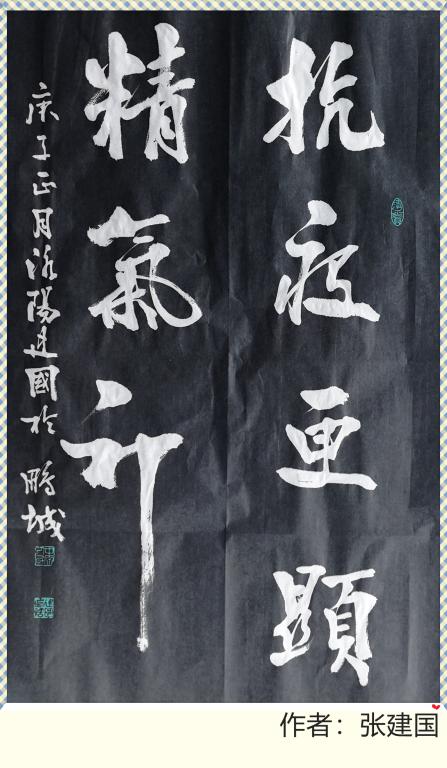 抗疫更顯
精氣神
庚子正月洛陽建國於鵬城
作者：张建国